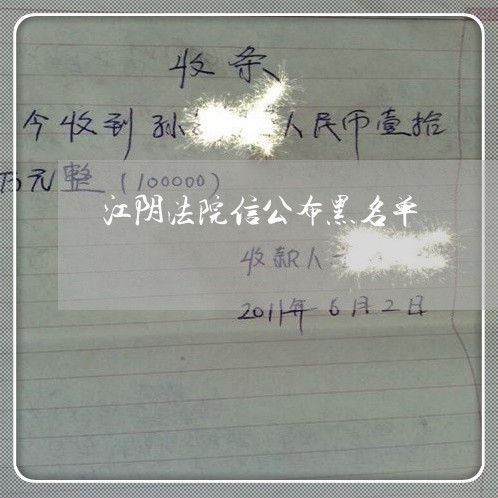 收条
今收到孙 人民币壹拾
万元整(100000)
江阴法院信公布黑名单
收款人
2011年6月2日